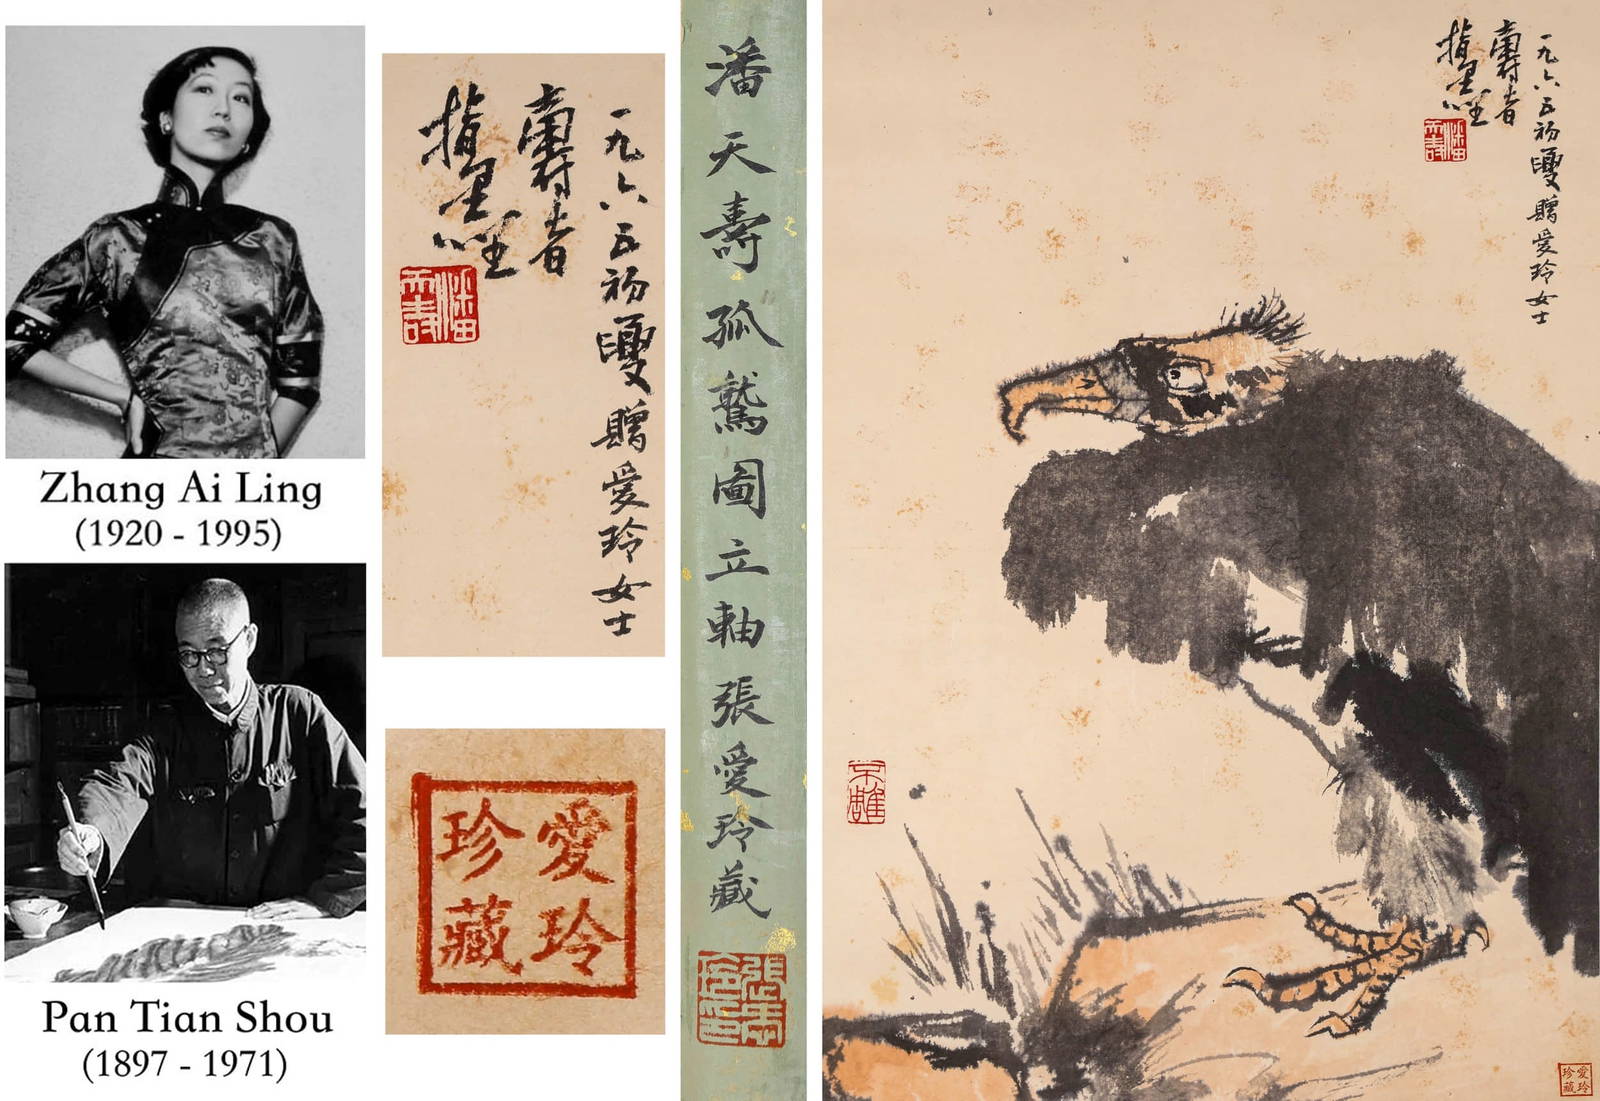 Zhang Ai Ling
(1920 - 1995)
Pan Tian Shou
(1897 - 1971)
一九六五初夏贈愛玲女士
壽者
指墨
潘天壽
愛玲
珍藏
潘天壽孤鷲圖立軸張愛玲藏
一九六五初夏贈愛玲女士
壽者
指墨
潘天壽
愛玲
珍藏